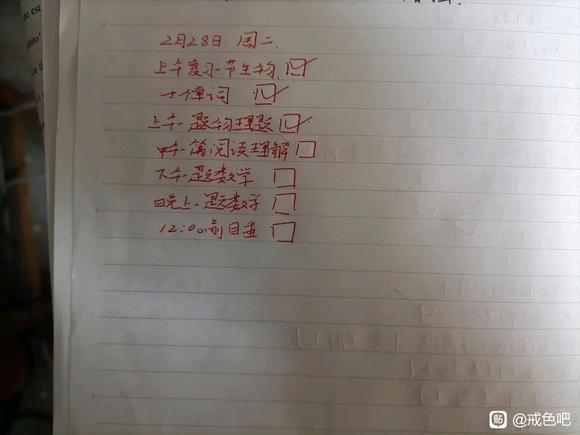 2月28日,周二.
上午复习一节生物
十个单词
上午一题物理题
中午一篇阅读理解
下午一题数学
晚上一题数学
12:00前目垂
贴 @戒色吧